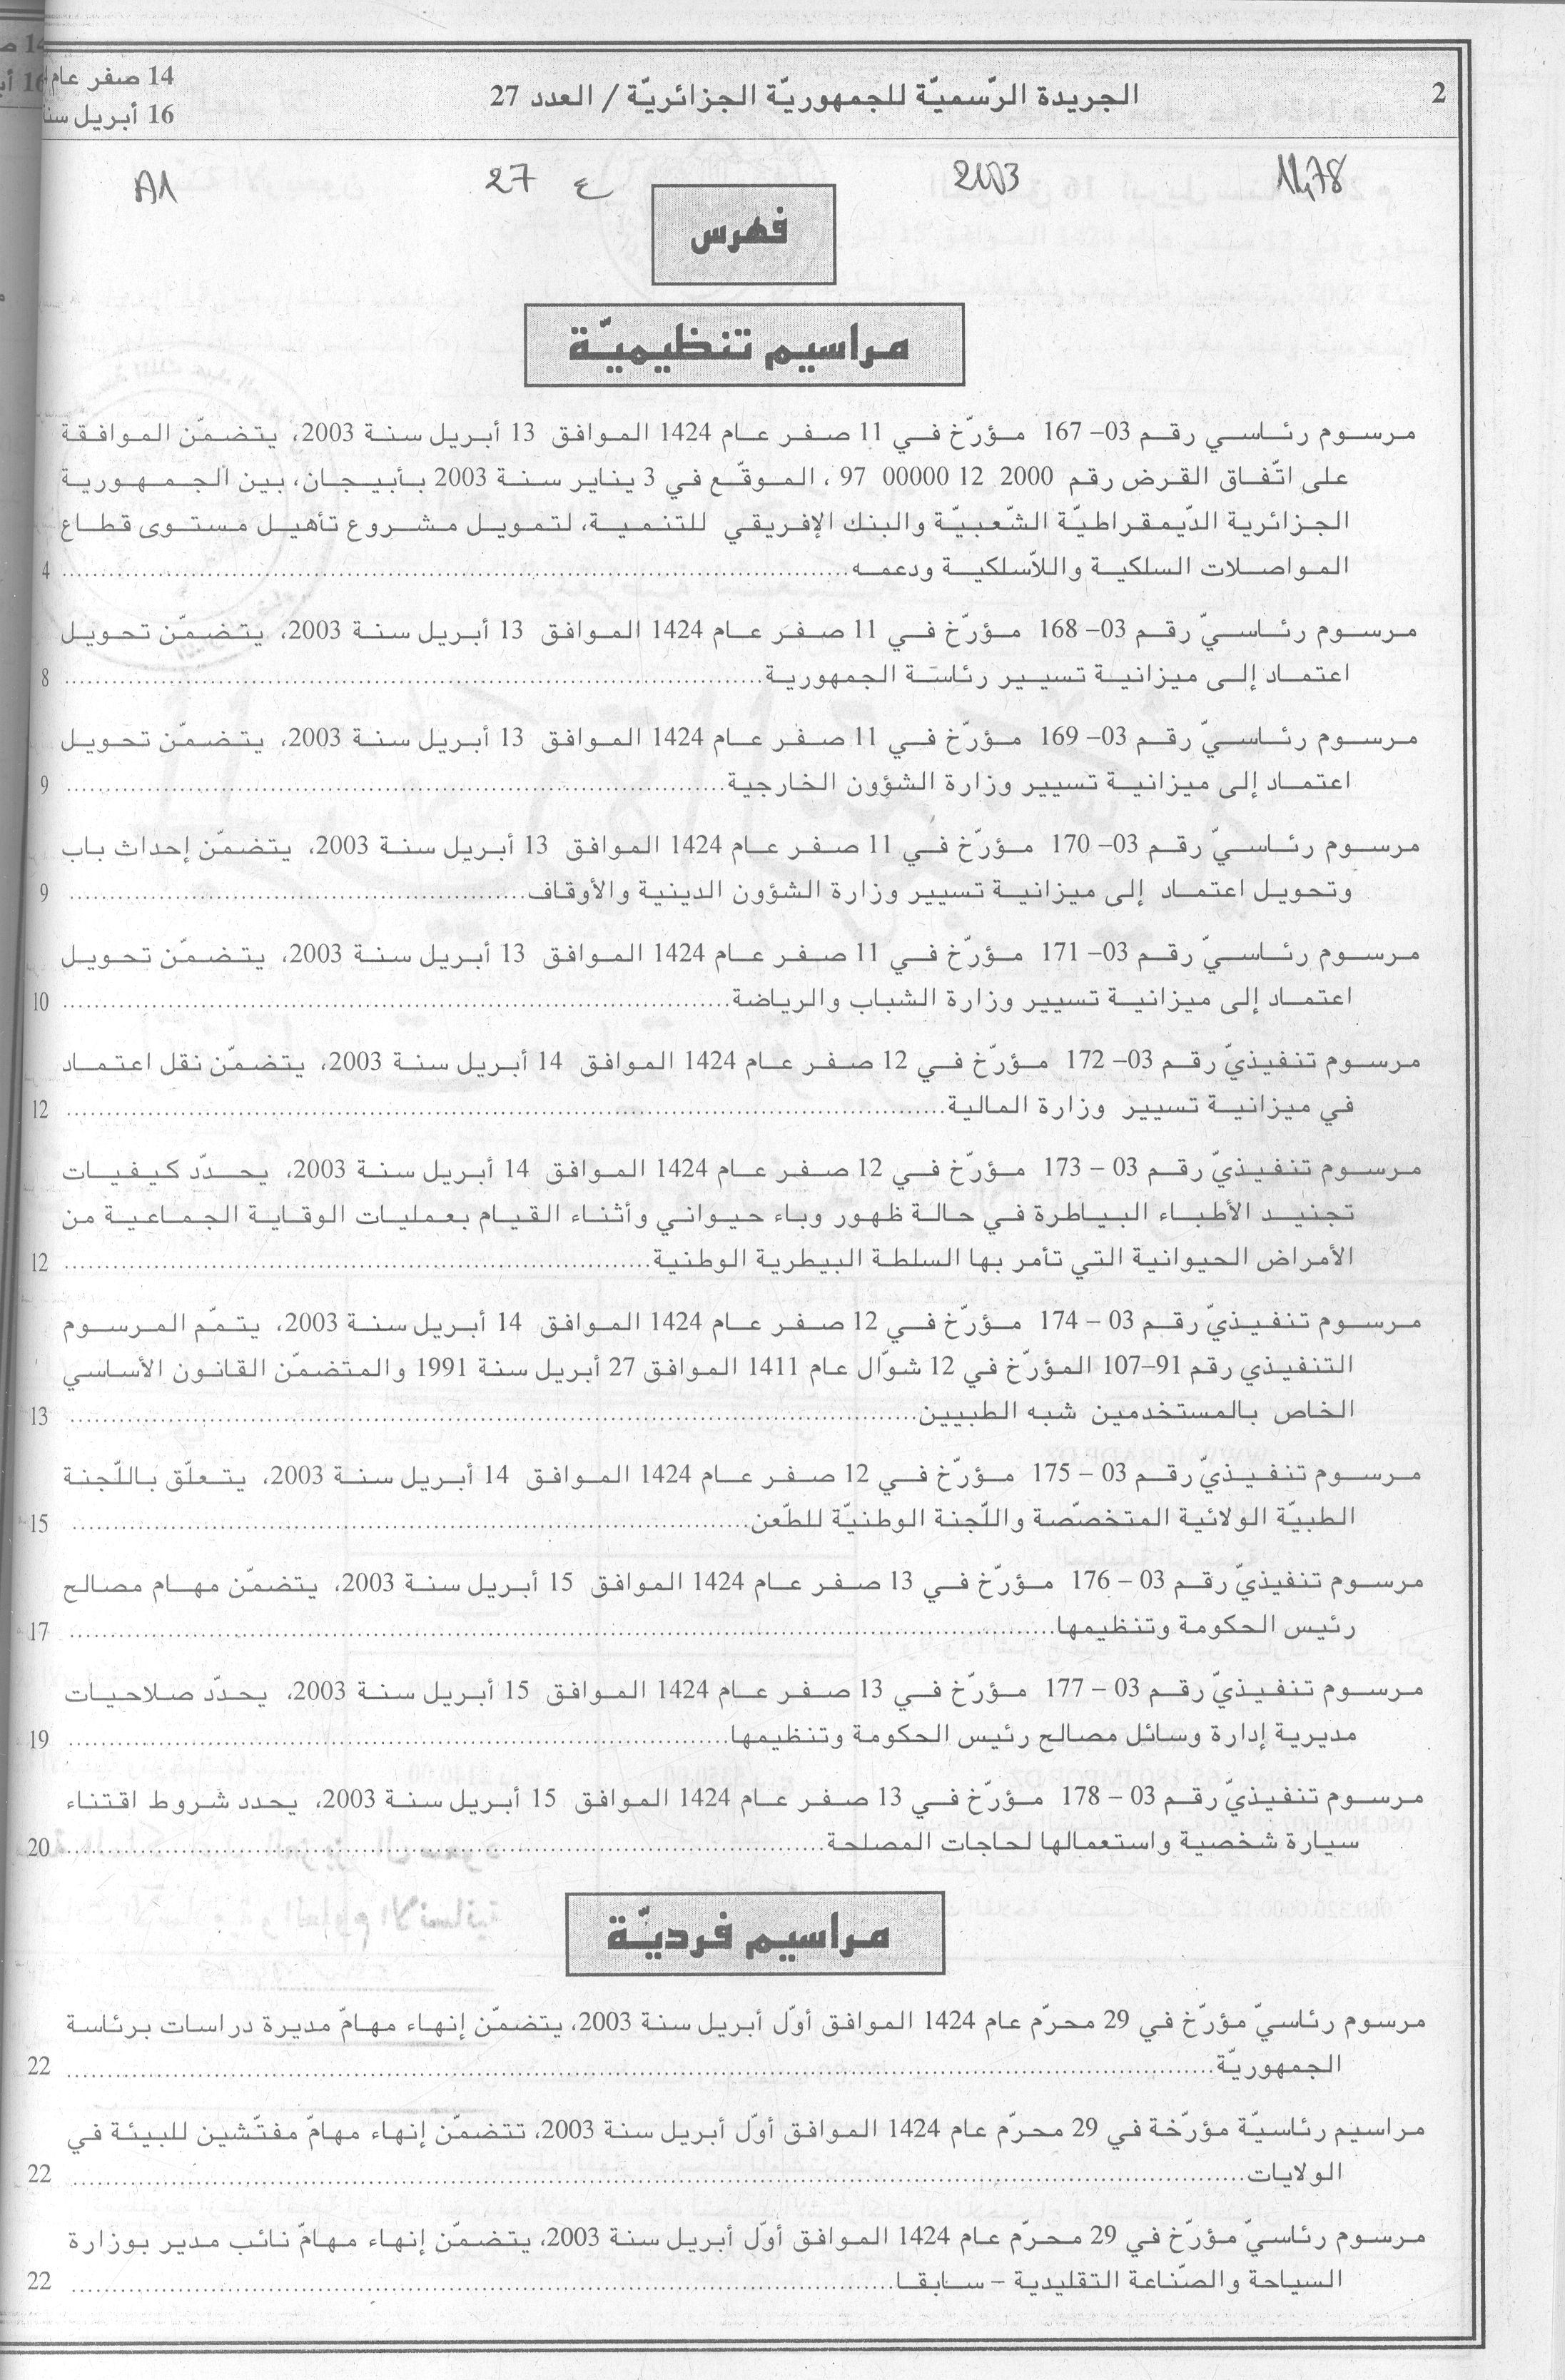 2
الجريدة الرّسميّة للجمهوريّة الجزائريّة / العدد 27
14 صفر عام
16 أبريل
2003
ع 27
A1
فهرس
مراسيم تنظيميّة
مرسوم رئاسي رقم 03– 167 مؤرّخ في 11 صفر عام 1424 الموافق 13 أبريل سنة 2003، يتضمّن الموافقة
على اتّفاق القرض رقم 2000 12 00000 97 ، الموقّع في 3 يناير سنة 2003 بأبيجان، بين الجمهورية
الجزائرية الدّيمقراطيّة الشّعبيّة والبنك الإفريقي للتنمية، لتمويل مشروع تأهيل مستوى قطاع
المواصلات السلكية واللاّسلكية ودعمه.......... 4
مرسوم رئاسيّ رقم 03– 168 مؤرّخ في 11 صفر عام 1424 الموافق 13 أبريل سنة 2003، يتضمّن تحويل
اعتماد إلى ميزانية تسيير رئاسة الجمهورية.......... 8
مرسوم رئاسيّ رقم 03– 169 مؤرّخ في 11 صفر عام 1424 الموافق 13 أبريل سنة 2003، يتضمّن تحويل
اعتماد إلى ميزانية تسيير وزارة الشؤون الخارجية.......... 9
مرسوم رئاسيّ رقم 03– 170 مؤرّخ في 11 صفر عام 1424 الموافق 13 أبريل سنة 2003، يتضمّن إحداث باب
وتحويل اعتماد إلى ميزانية تسيير وزارة الشؤون الدينية والأوقاف.......... 9
مرسوم رئاسيّ رقم 03– 171 مؤرّخ في 11 صفر عام 1424 الموافق 13 أبريل سنة 2003، يتضمّن تحويل
اعتماد إلى ميزانية تسيير وزارة الشباب والرياضة.......... 10
مرسوم تنفيذيّ رقم 03– 172 مؤرّخ في 12 صفر عام 1424 الموافق 14 أبريل سنة 2003، يتضمّن نقل اعتماد
في ميزانية تسيير وزارة المالية.......... 12
مرسوم تنفيذيّ رقم 03 – 173 مؤرّخ في 12 صفر عام 1424 الموافق 14 أبريل سنة 2003، يحدّد كيفيات
تجنيد الأطباء البياطرة في حالة ظهور وباء حيواني وأثناء القيام بعمليات الوقاية الجماعية من
الأمراض الحيوانية التي تأمر بها السلطة البيطرية الوطنية.......... 12
مرسوم تنفيذيّ رقم 03 – 174 مؤرّخ في 12 صفر عام 1424 الموافق 14 أبريل سنة 2003، يتمّم المرسوم
التنفيذي رقم 91–107 المؤرّخ في 12 شوّال عام 1411 الموافق 27 أبريل سنة 1991 والمتضمّن القانون الأساسي
الخاص بالمستخدمين شبه الطبيين.......... 13
مرسوم تنفيذيّ رقم 03 – 175 مؤرّخ في 12 صفر عام 1424 الموافق 14 أبريل سنة 2003، يتعلّق باللّجنة
الطبيّة الولائية المتخصّصة واللّجنة الوطنيّة للطّعن.......... 15
مرسوم تنفيذيّ رقم 03 – 176 مؤرّخ في 13 صفر عام 1424 الموافق 15 أبريل سنة 2003، يتضمّن مهام مصالح
رئيس الحكومة وتنظيمها.......... 17
مرسوم تنفيذيّ رقم 03 – 177 مؤرّخ في 13 صفر عام 1424 الموافق 15 أبريل سنة 2003، يحدّد صلاحيات
مديرية إدارة وسائل مصالح رئيس الحكومة وتنظيمها.......... 19
مرسوم تنفيذيّ رقم 03 – 178 مؤرّخ في 13 صفر عام 1424 الموافق 15 أبريل سنة 2003، يحدد شروط اقتناء
سيارة شخصية واستعمالها لحاجات المصلحة.......... 20
مراسيم فرديّة
مرسوم رئاسيّ مؤرّخ في 29 محرّم عام 1424 الموافق أوّل أبريل سنة 2003، يتضمّن إنهاء مهامّ مديرة دراسات برئاسة
الجمهوريّة.......... 22
مراسيم رئاسيّة مؤرّخة في 29 محرّم عام 1424 الموافق أوّل أبريل سنة 2003، تتضمّن إنهاء مهامّ مفتّشين للبيئة في
الولايات.......... 22
مرسوم رئاسيّ مؤرّخ في 29 محرّم عام 1424 الموافق أوّل أبريل سنة 2003، يتضمّن إنهاء مهامّ نائب مدير بوزارة
السياحة والصّناعة التقليدية – سابقا.......... 22